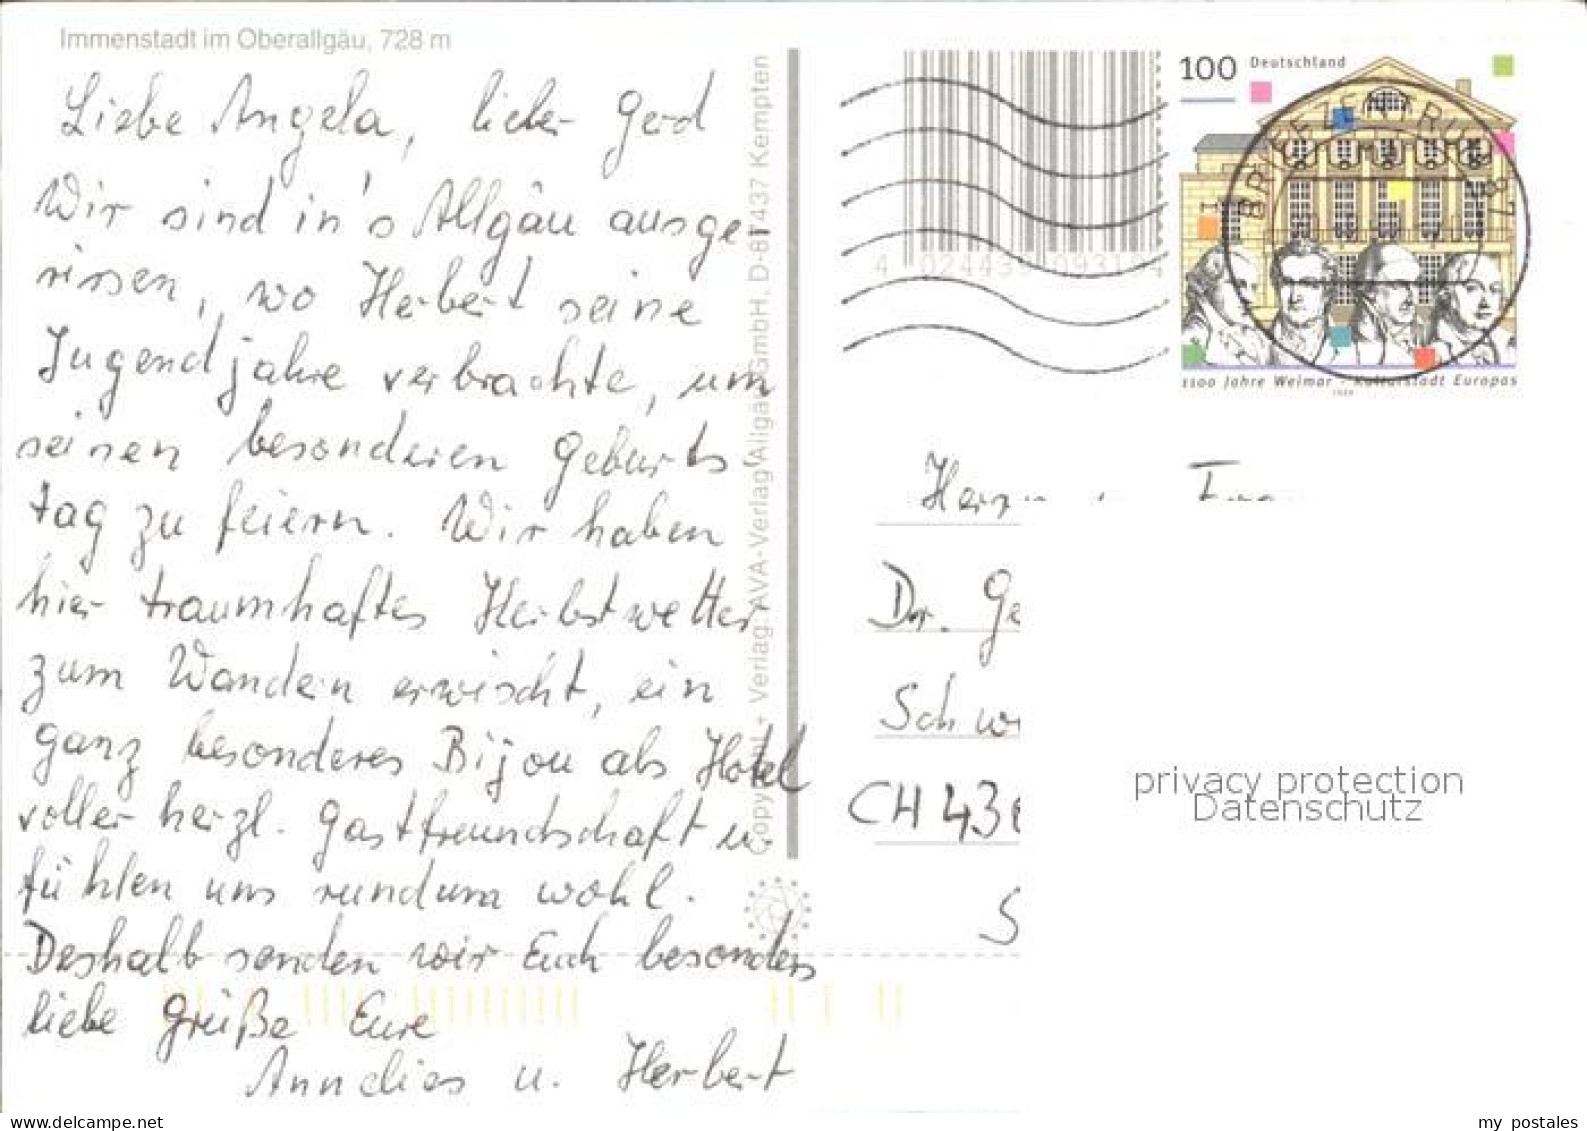 Immenstadt im Oberallgäu, 728 m
Liebe Angela, lieber Gerd
Wir sind in's Allgäu ausge-
rissen, wo Herbert seine
Jugendjahre verbrachte, um
seinen besonderen Geburts
tag zu feiern. Wir haben
hier traumhaftes Herbstwetter
zum Wandern erwischt, ein
ganz besonderes Bijou als Hotel
voller herzl. Gastfreundschaft u.
fühlen uns rundum wohl.
Deshalb senden wir Euch besonders
liebe Grüße Eure
Annelies u. Herbert
Copyright + Verlag: AVA-Verlag Allgäu GmbH, D-87437 Kempten
100 Deutschland
BRIEFZENTRUM 87
1100 Jahre Weimar - Kulturstadt Europas
1999
Dr. Ge
Schw
CH 43
S
privacy protection
Datenschutz
www.delcampe.net
my_postales